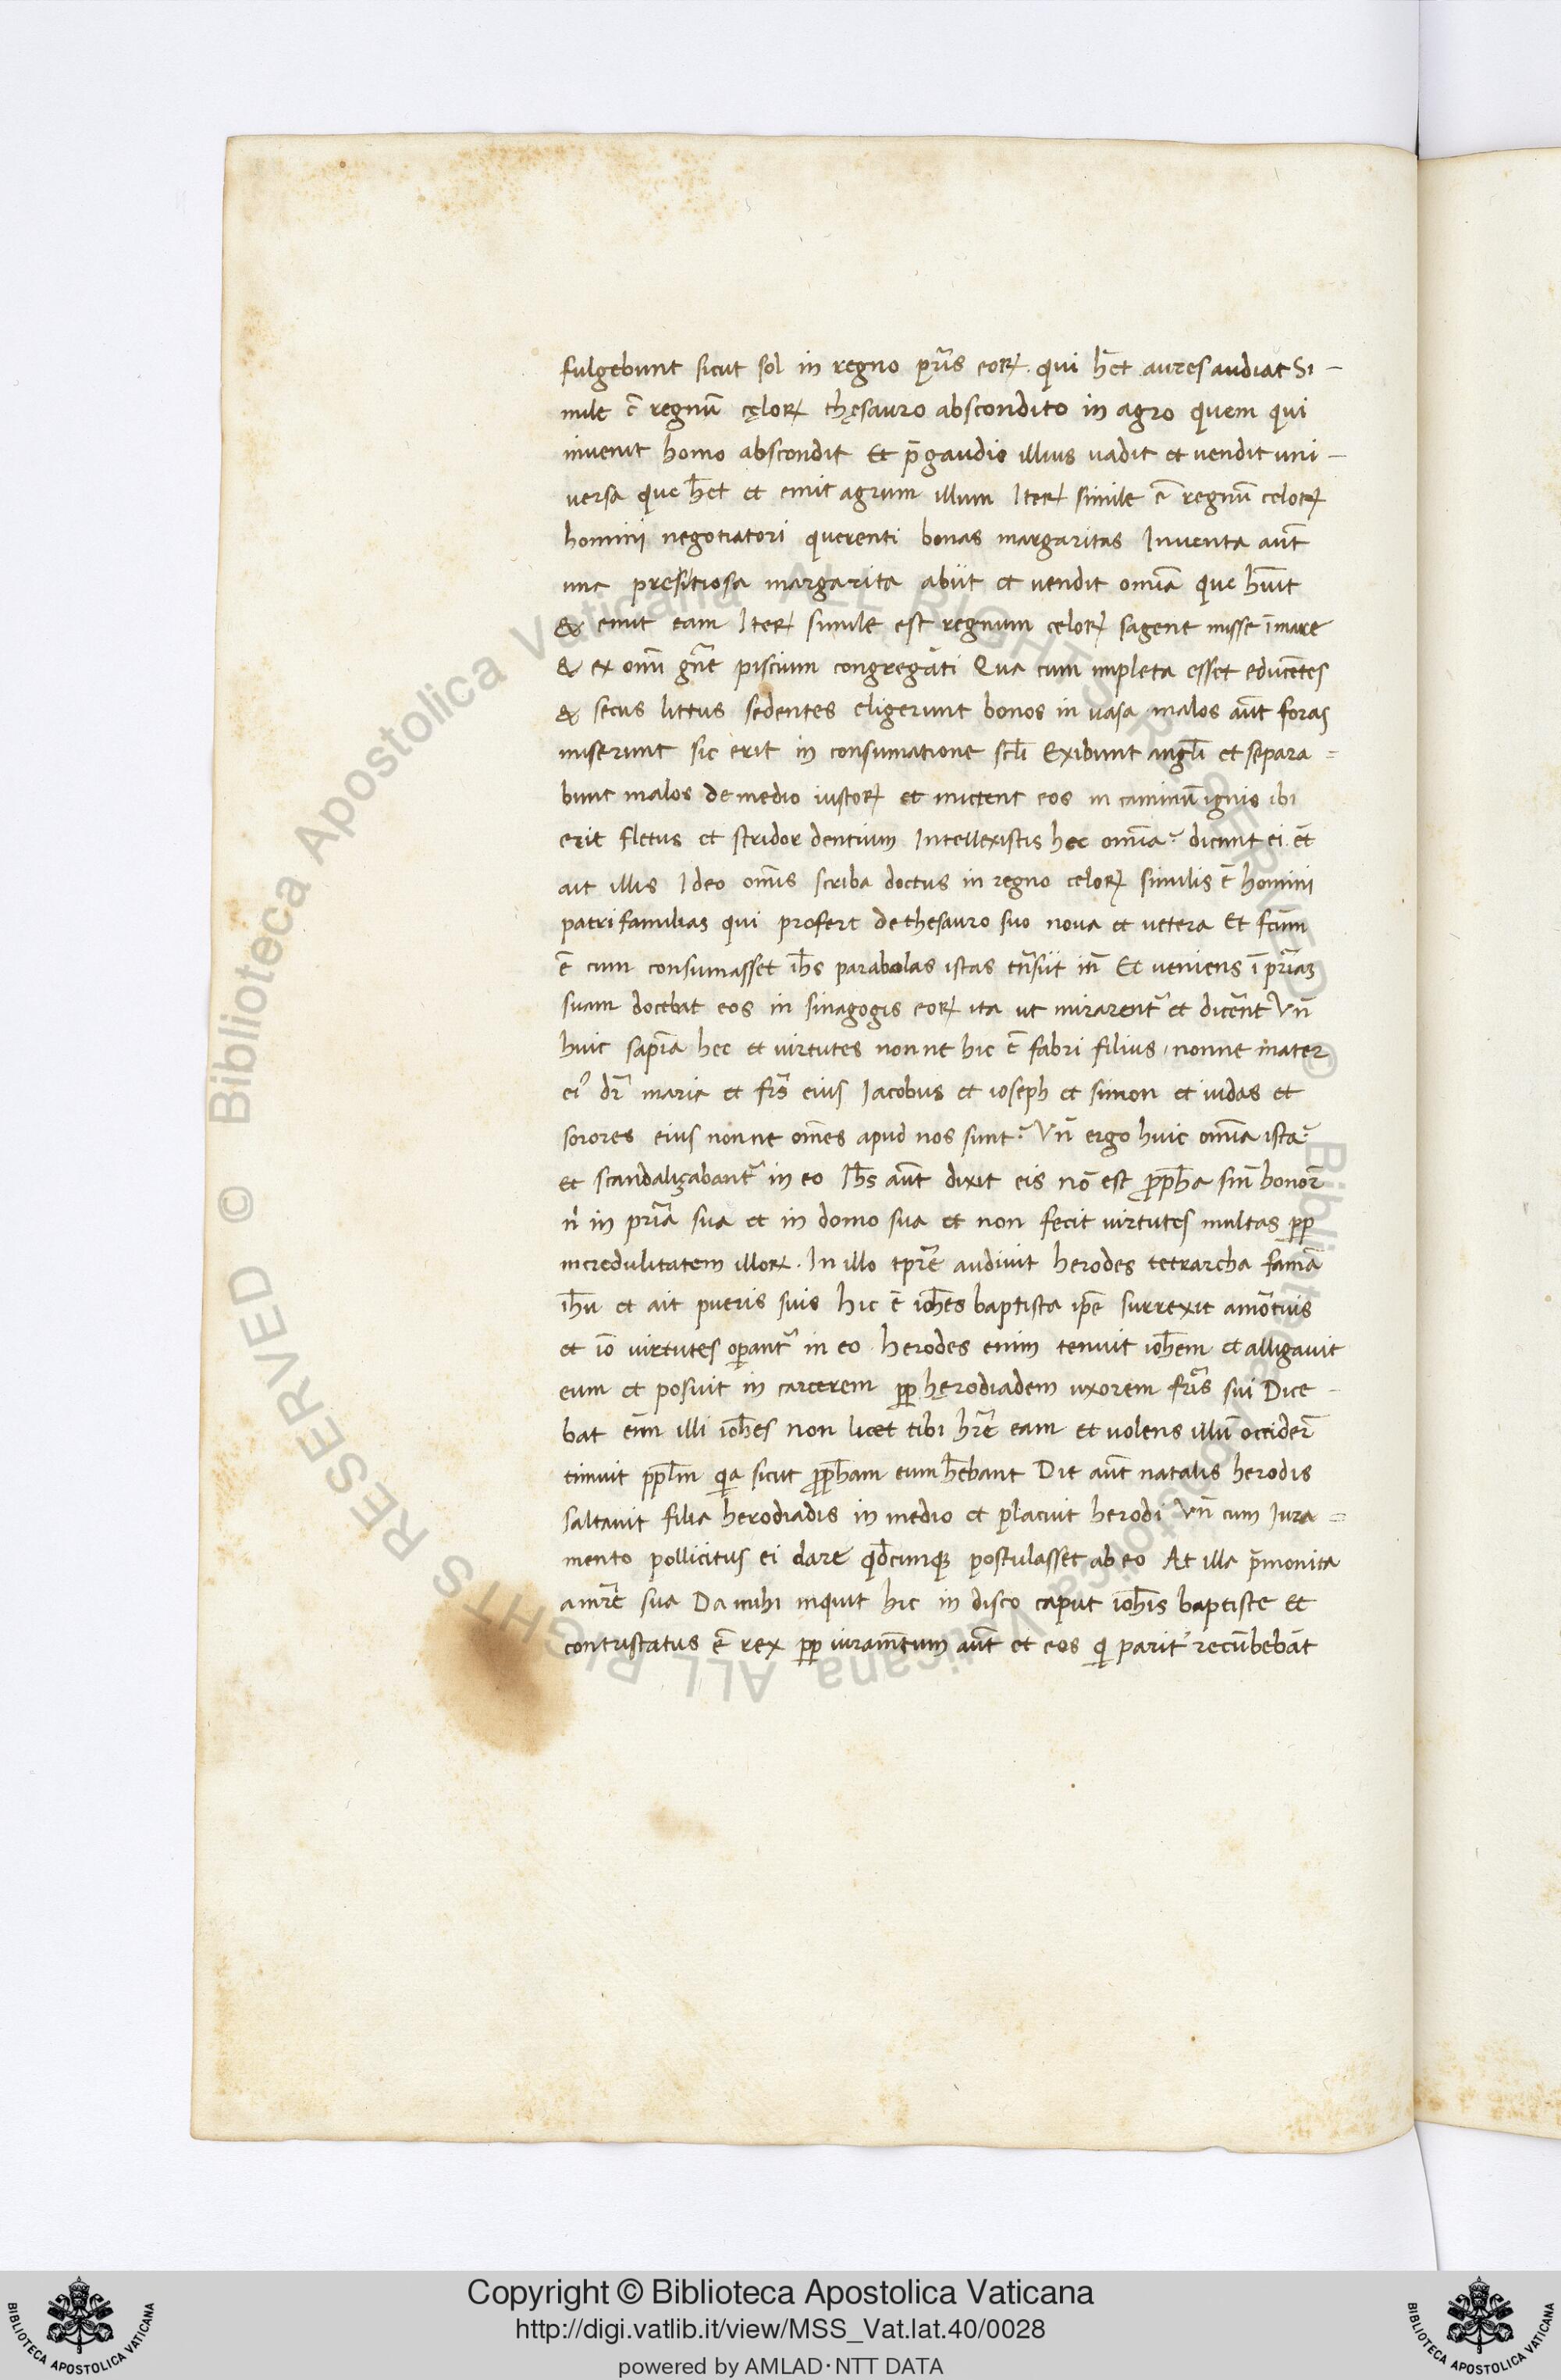 fulgebunt sicut sol in regno pr̃is eoꝝ. qui h̃et aures audiat Si-
mile ē regnū cęloꝝ thęsauro abscondito in agro quem qui
invenit homo abscondit Et p̄gaudio illius uadit et vendit uni-
versa que h̃et et emit agrum illum Iteꝝ simile ē regnū celoꝝ
homini negotiatori querenti bonas margaritas Inventa aūt
una presitiosa margarita abiit et vendit omīa que h̃uit
& emit eam Iteꝝ simile est regnum celoꝝ sagene misse ī mare
& ex omī gñe piscium congregāti Qua cum impleta esset educētes
& secus littus sedentes eligerunt bonos in uasa malos aūt foras
miserunt sic erit in consumatione scl̃i Exibunt angl̃i et separa=
bunt malos de medio iustoꝝ et mictent eos in caminū ignis ibi
erit fletus et stridor dentium Intellexistis hec omīa? dicunt ei ēt
ait illis Ideo om̄is scriba doctus in regno celoꝝ similis ē homini
patrifamilias qui profert de thesauro suo nova et vetera Et fc̄um
ē cum consumasset ih̃s parabolas istas tñsiit iñ Et veniens ī pr̃iaz
suam docebat eos in sinagogis eoꝝ ita ut mirarent᷑ et dicēnt Vñ
huic sapīa hec et virtutes nonne hic ē fabri filius, nonne mater
ei᷒ dr̃ maria et fr̃s eius Iacobus et ioseph et simon et iudas et
sorores eius nonne om̄es apud nos sunt? Vñ ergo huic omīa ista?
et scandalizabant᷑ in eo Ih̃s aūt dixit eis nō est ꝓph̃a sñ honor̃
n̓ in pr̃ia sua et in domo sua et non fecit virtutes multas ꝓp
incredulitatem illoꝝ. In illo tpr̃e audivit herodes tetrarcha famā
ih̃u et ait pueris suis hic ē ioh̃es baptista ip̄e surrexit amor̃tuis
et iō virtutes oꝑant᷑ in eo herodes enim tenuit ioh̃em et alligavit
eum et posuit in carcerem ꝓp hęrodiadem uxorem fr̃is sui Dice-
bat eīm illi ioh̃es non licet tibi hr̃e eam et volens illū occider̃
timuit ppl̃m qͥa sicut ꝓph̃am eum h̃ebant Die aūt natalis herodis
saltavit filia herodiadis in medio et placuit herodi Vñ cum Iura=
mento pollicitus ei dare qͥdcunqꝫ postulasset ab eo At illa p̄monita
amr̃e sua Da mihi inquit hic in disco caput ioh̃is baptiste Et
contristatus ē rex ꝓp iuram̄tum aūt et eos qͥ parit᷑ recūbebāt
© Biblioteca Apostolica Vaticana ALL RIGHTS RESERVED © Biblioteca Apostolica Vaticana ALL RIGHTS RESERVED
BIBLIOTECA APOSTOLICA VATICANA
Copyright © Biblioteca Apostolica Vaticana
http://digi.vatlib.it/view/MSS_Vat.lat.40/0028
powered by AMLAD·NTT DATA
BIBLIOTECA APOSTOLICA VATICANA